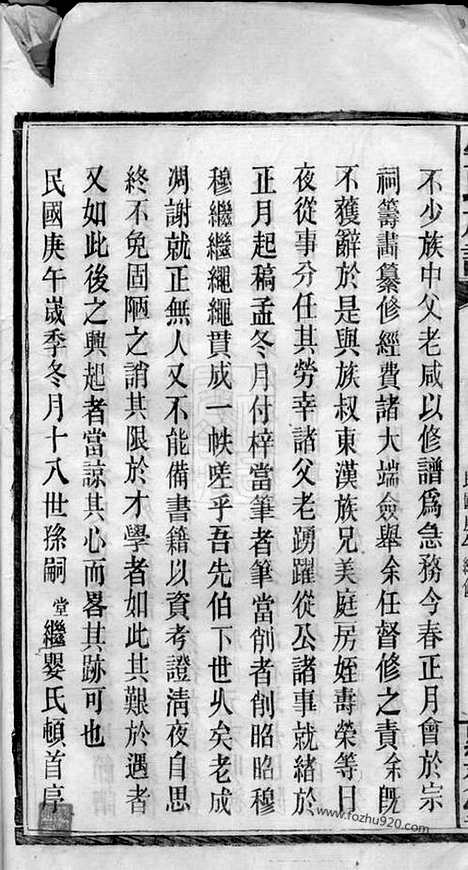 不少族中父老咸以修譜爲急務今春正月會於宗
祠籌畫纂修經費諸大端僉舉余任督修之責余旣
不獲辭於是與族叔東漢族兄美庭房姪壽榮等日
夜從事分任其勞幸諸父老踴躍從公諸事就緒於
正月起稿孟冬月付梓當筆者筆當削者削昭昭穆
穆繼繼繩繩貫成一帙嗟乎吾先伯下世乆矣老成
凋謝就正無人又不能備書籍以資考證淸夜自思
終不免固陋之誚其限於才學者如此其艱於遇者
又如此後之興起者當諒其心而畧其跡可也
民國庚午嵗季冬月十八世孫嗣堂繼嬰氏頓首序
www.fozhu920.com